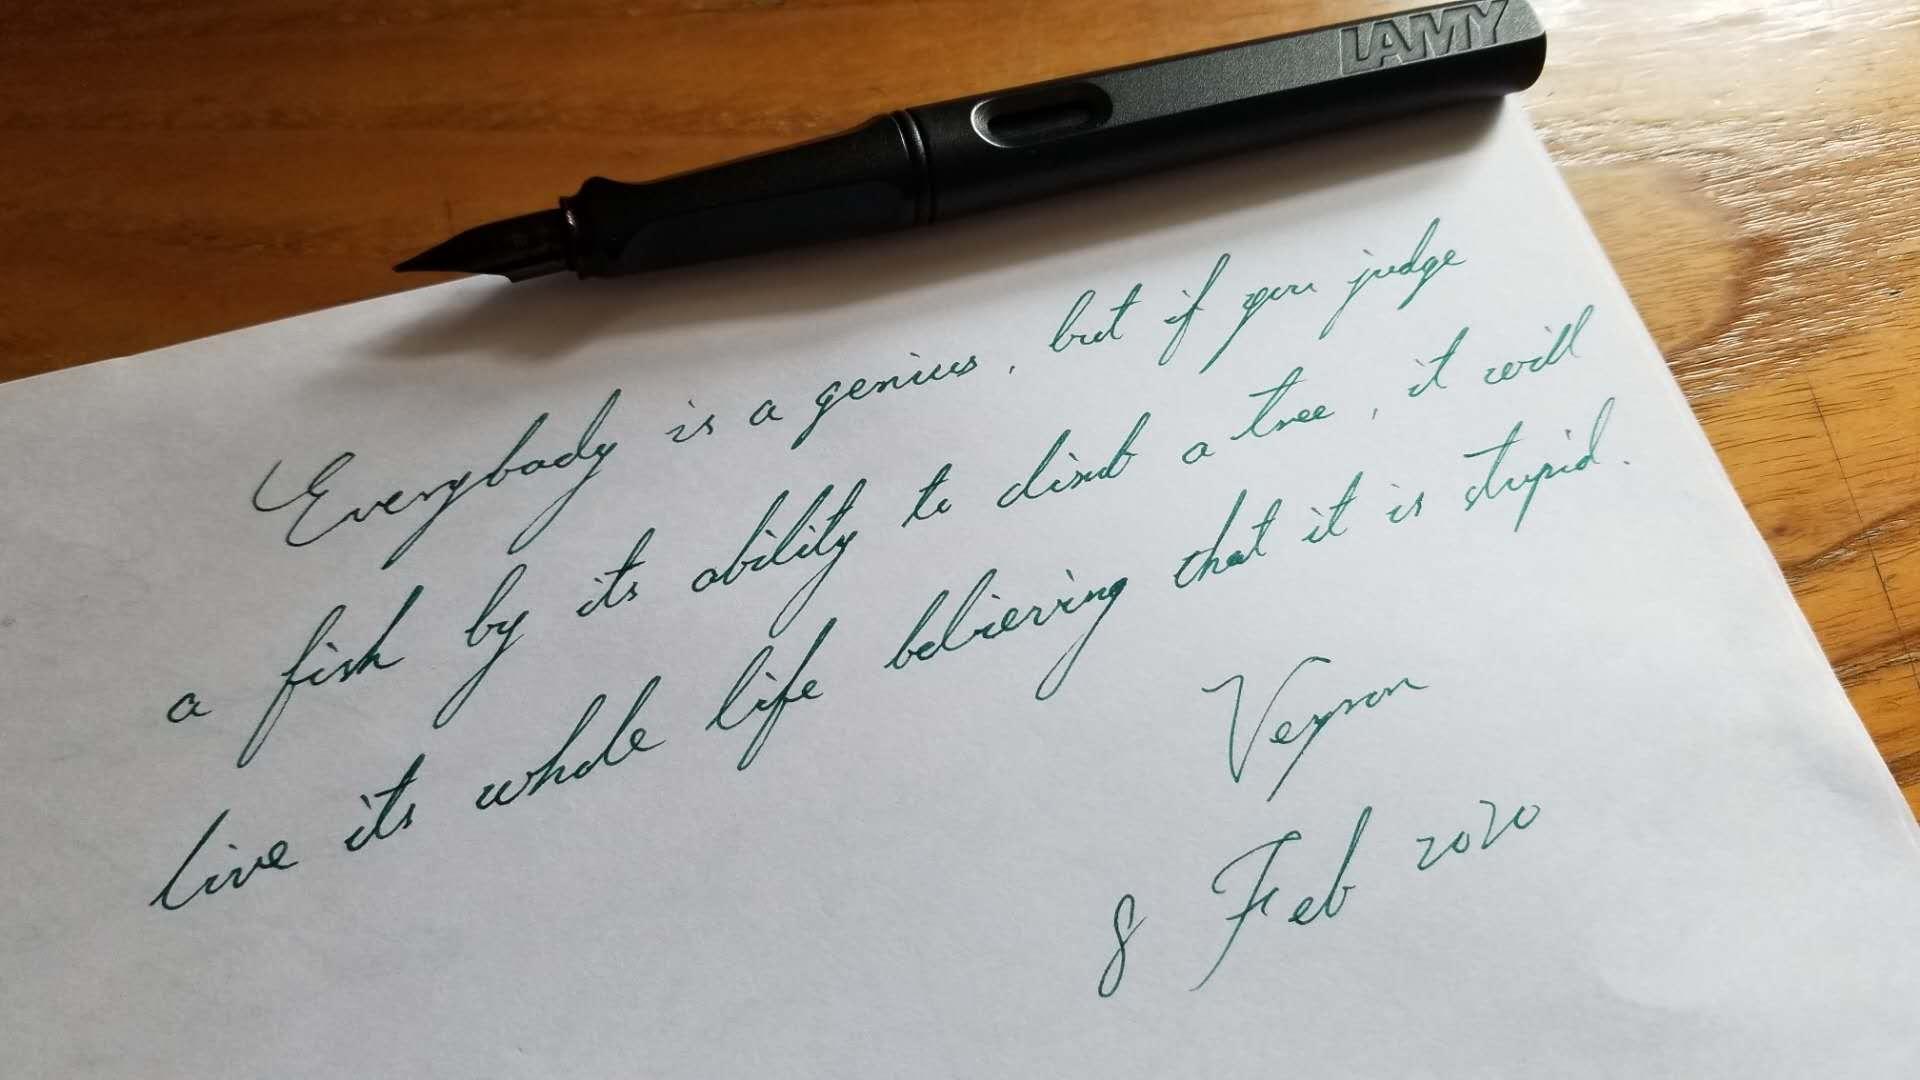 LAMY
Everybody is a genius, but if you judge
a fish by its ability to climb a tree, it will
live its whole life believing that it is stupid.
Veyron
8 Feb 2020